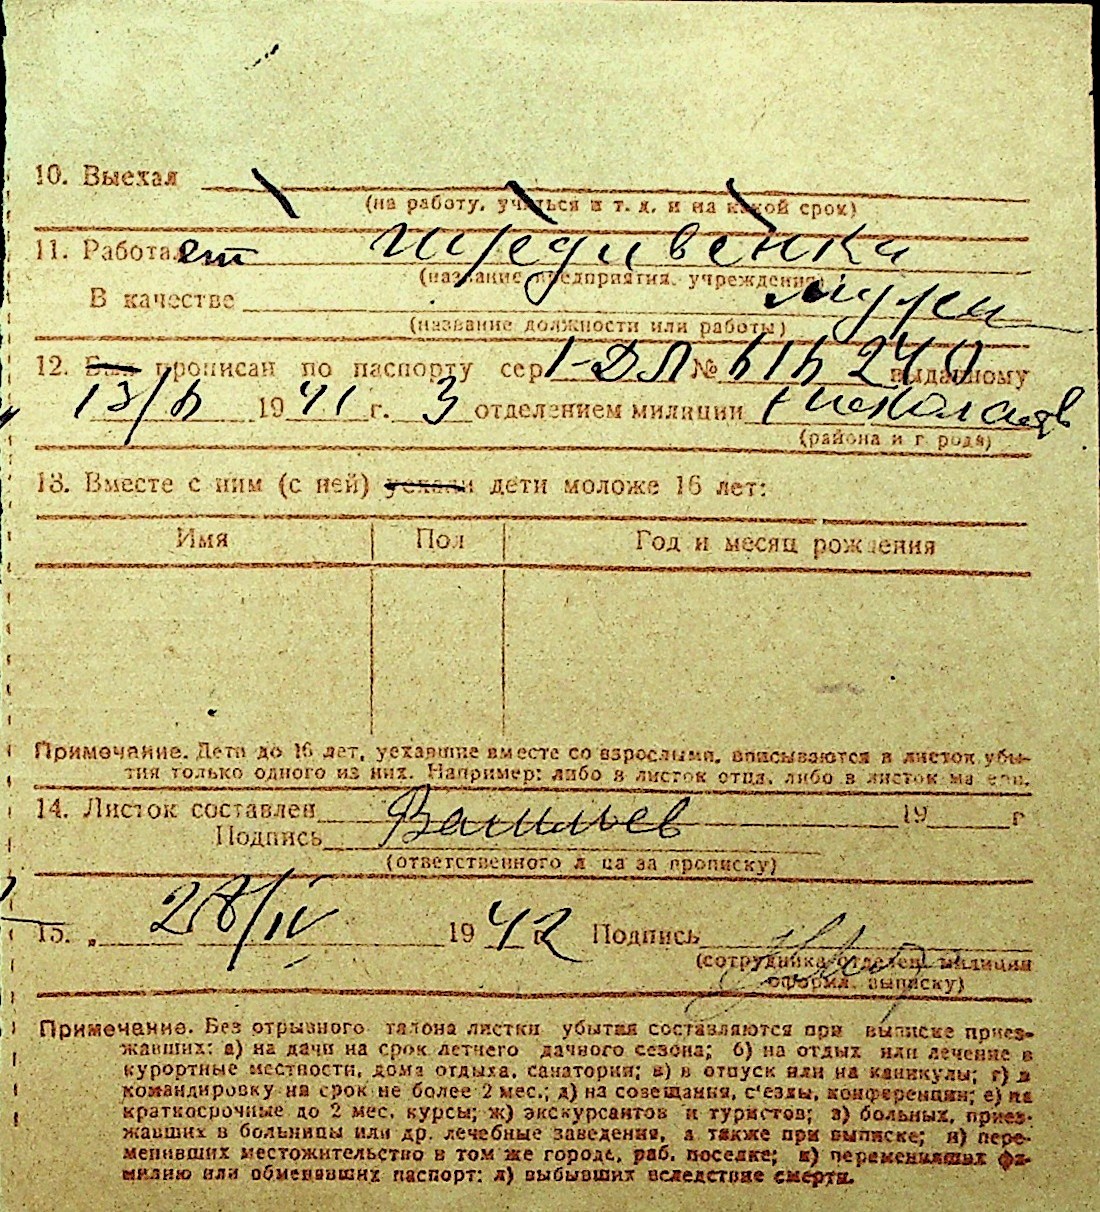 10. Выехал
(на работу, учиться и т. д. и на какой срок)
11. Работает иждивенка
(название предприятия, учреждения)
В качестве мужа
(название должности или работы)
12. Был прописан по паспорту сер. 1-ДЛ № 616240 выданному
13/6 1941 г. 3 отделением милиции г Николаев
(района и города)
13. Вместе с ним (с ней) уехали дети моложе 16 лет:
Имя Пол Год и месяц рождения
Примечание. Дети до 16 лет, уехавшие вместе со взрослыми, вписываются в листок убы-
тия только одного из них. Например: либо в листок отца, либо в листок матери.
14. Листок составлен 19 г
Подпись Васильев
(ответственного лица за прописку)
15. „ 28/IV 1942 г Подпись
(сотрудника отделен. милиции
оформл. выписку)
Примечание. Без отрывного талона листки убытия составляются при выписке приез-
жавших: а) на дачи на срок летнего дачного сезона; б) на отдых или лечение в
курортные местности, дома отдыха, санатории; в) в отпуск или на каникулы; г) в
командировку на срок не более 2 мес.; д) на совещания, с'езды, конференции; е) на
краткосрочные до 2 мес. курсы; ж) экскурсантов и туристов; з) больных, приез-
жавших в больницы или др. лечебные заведения, а также при выписке; и) пере-
менивших местожительство в том же городе, раб. поселке; к) переменивших фа-
милию или обменявших паспорт; л) выбывших вследствие смерти.